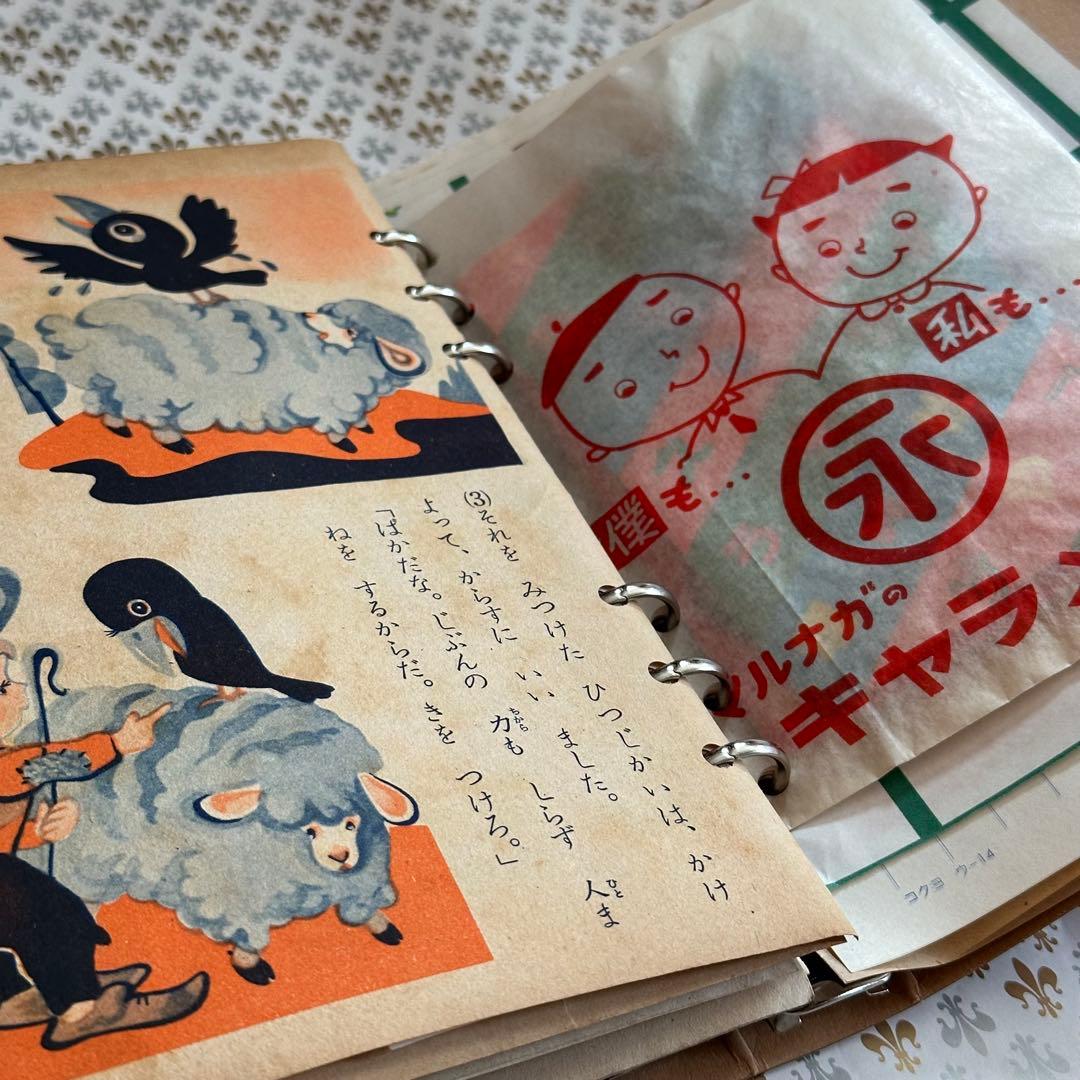 (3)それを みつけた ひつじかいは、かけ
よって、からすに いい ました。
「ばかだな。じぶんの 力も しらず 人ま
ねを するからだ。きを つけろ。」
私も…
僕も…
永
マルナガの
キャラメ
コクヨ ウ-14